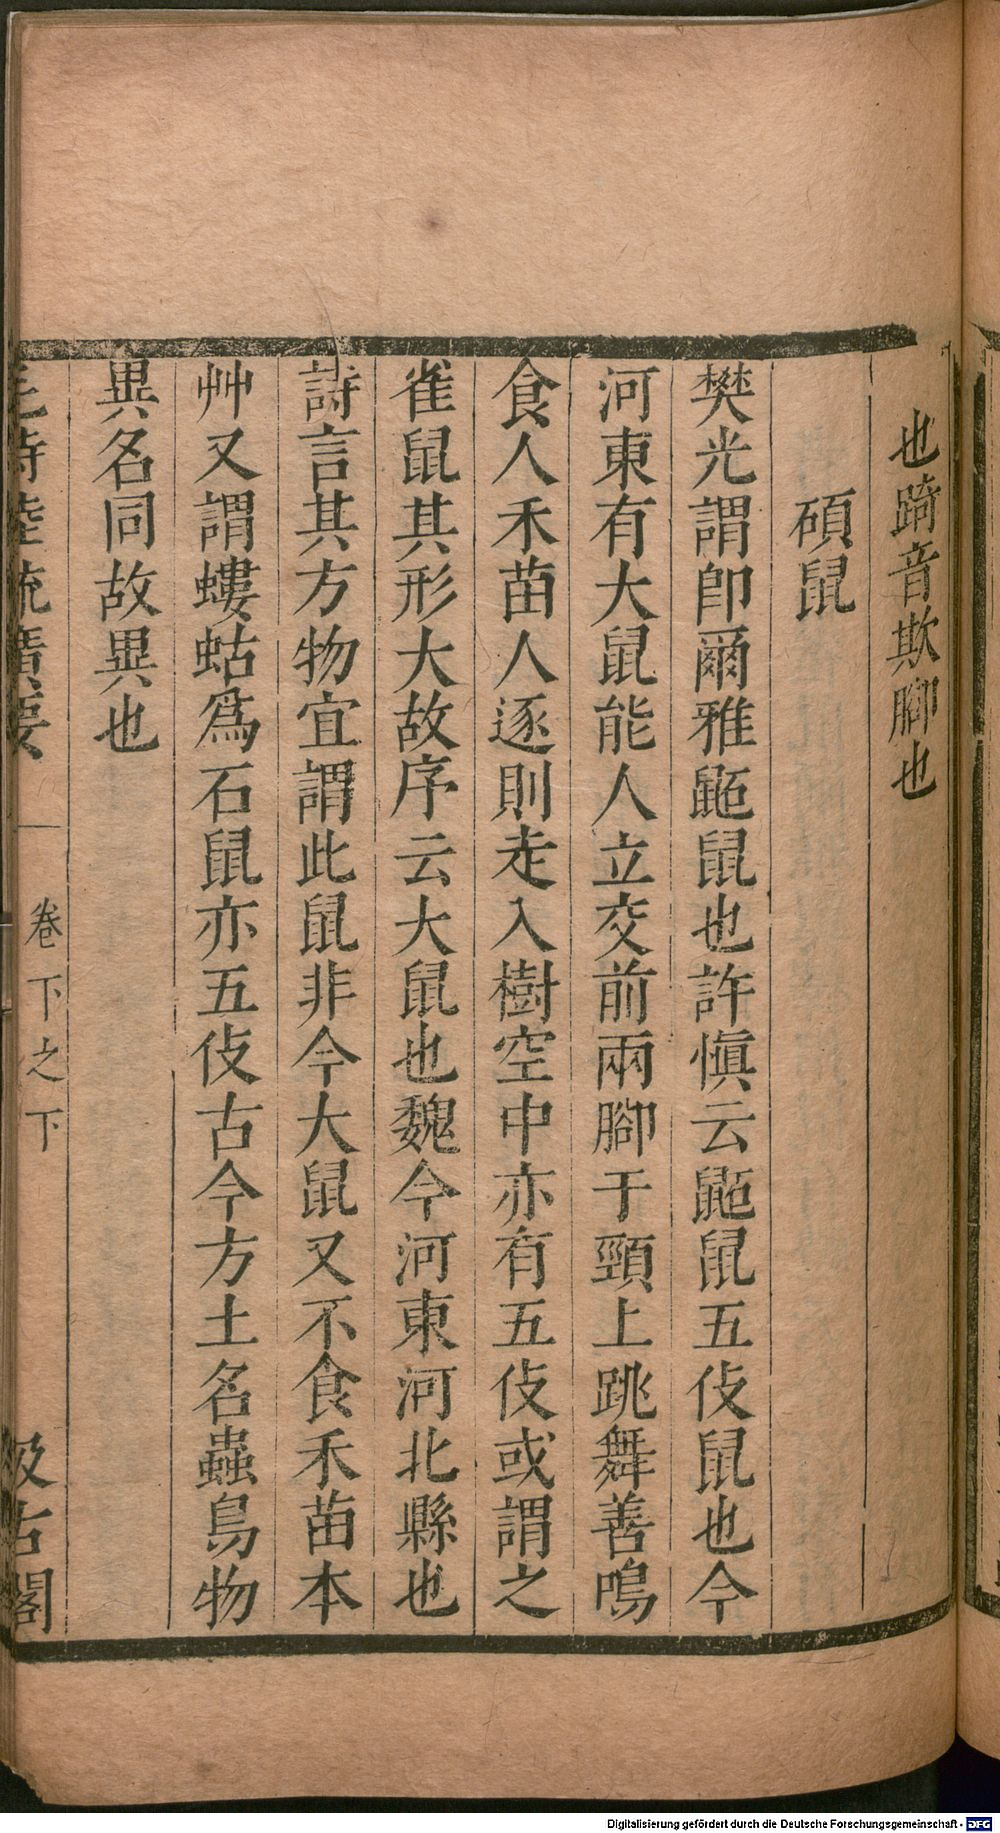 也踦音欺腳也
碩鼠
樊光謂卽爾雅鼫鼠也許愼云鼫鼠五伎鼠也今
河東有大鼠能人立交前兩腳于頸上跳舞善鳴
食人禾苗人逐則走入樹空中亦有五伎或謂之
雀鼠其形大故序云大鼠也魏今河東河北縣也
詩言其方物宜謂此鼠非今大鼠又不食禾苗本
艸又謂螻蛄爲石鼠亦五伎古今方土名蟲鳥物
異名同故異也
毛詩陸疏廣要 卷下之下 汲古閣
Digitalisierung gefördert durch die Deutsche Forschungsgemeinschaft - DFG